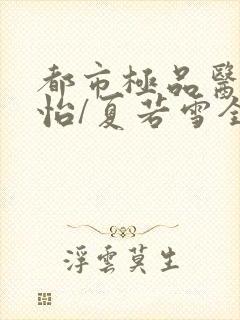 都市極品醫
怡/夏若雪全
浮雲莫生